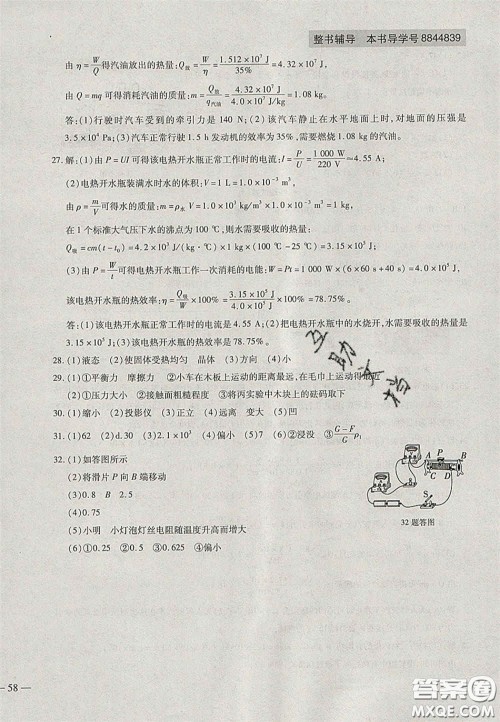 整书辅导 本书导学号 8844839
由 η=W/Q 得汽油放出的热量:Q放=W/η=1.512×10⁷ J/35%=4.32×10⁷ J,
由 q=Q/m 可得消耗汽油的质量:m=Q放/q汽油=4.32×10⁷ J/4.0×10⁷ J/kg=1.08 kg。
答:(1)行驶时汽车受到的牵引力是 140 N;(2)该汽车静止在水平地面上时,对地面的压强是
3.5×10⁴ Pa;(3)汽车正常行驶 1.5 h 发动机的效率为 35%,需要燃烧 1.08 kg 的汽油。
27.解:(1)由 P=UI 可得该电热开水瓶正常工作时的电流:I=P/U=1 000 W/220 V≈4.55 A;
(2)电热开水瓶装满水时水的体积:V=1 L=1×10⁻³ m³,
由 ρ=m/V 可得水的质量:m=ρ水V=1.0×10³ kg/m³×1×10⁻³ m³=1 kg,
在 1 个标准大气压下水的沸点为 100 ℃,则水需要吸收的热量:
Q吸=cm(t-t₀)=4.2×10³ J/(kg·℃)×1 kg×(100 ℃-25 ℃)=3.15×10⁵ J;
(3)由 P=W/t 可得电热开水瓶工作一次消耗的电能:W=Pt=1 000 W×(6×60 s+40 s)=4×10⁵ J,
该电热开水瓶的热效率:η=Q吸/W×100%=3.15×10⁵ J/4×10⁵ J×100%=78.75%。
答:(1)该电热开水瓶正常工作时的电流是 4.55 A;(2)把电热开水瓶中的水烧开,水需要吸收的热量是
3.15×10⁵ J;(3)该电热开水瓶的热效率是 78.75%。
28.(1)液态 (2)使固体受热均匀 晶体 (3)方向 (4)小
29.(1)①平衡力 摩擦力 ②小车在木板上运动的距离最远,在毛巾上运动得最近
(2)①压力大小 ②接触面粗糙程度 ③将丙实验中木块上的砝码取下
30.(1)缩小 (2)投影仪 (3)正立 (4)远离 变大 (5)凹
31.(1)62 (2)d.30 (3)2.1×10³ (4)偏大 (5)6 (6)②浸没 ③(G-F)/G ρ₁
32.(1)如答图所示
(2)将滑片 P 向 B 端移动
(3)0.8 B 2.5
(4)0.75
(5)小明 小灯泡灯丝电阻随温度升高而增大
(6)①0.25 ②0.5 ③0.625 ④偏小
A P B
C D
S
32 题答图
互助文档
58 —
答案圈
MXQE.COM